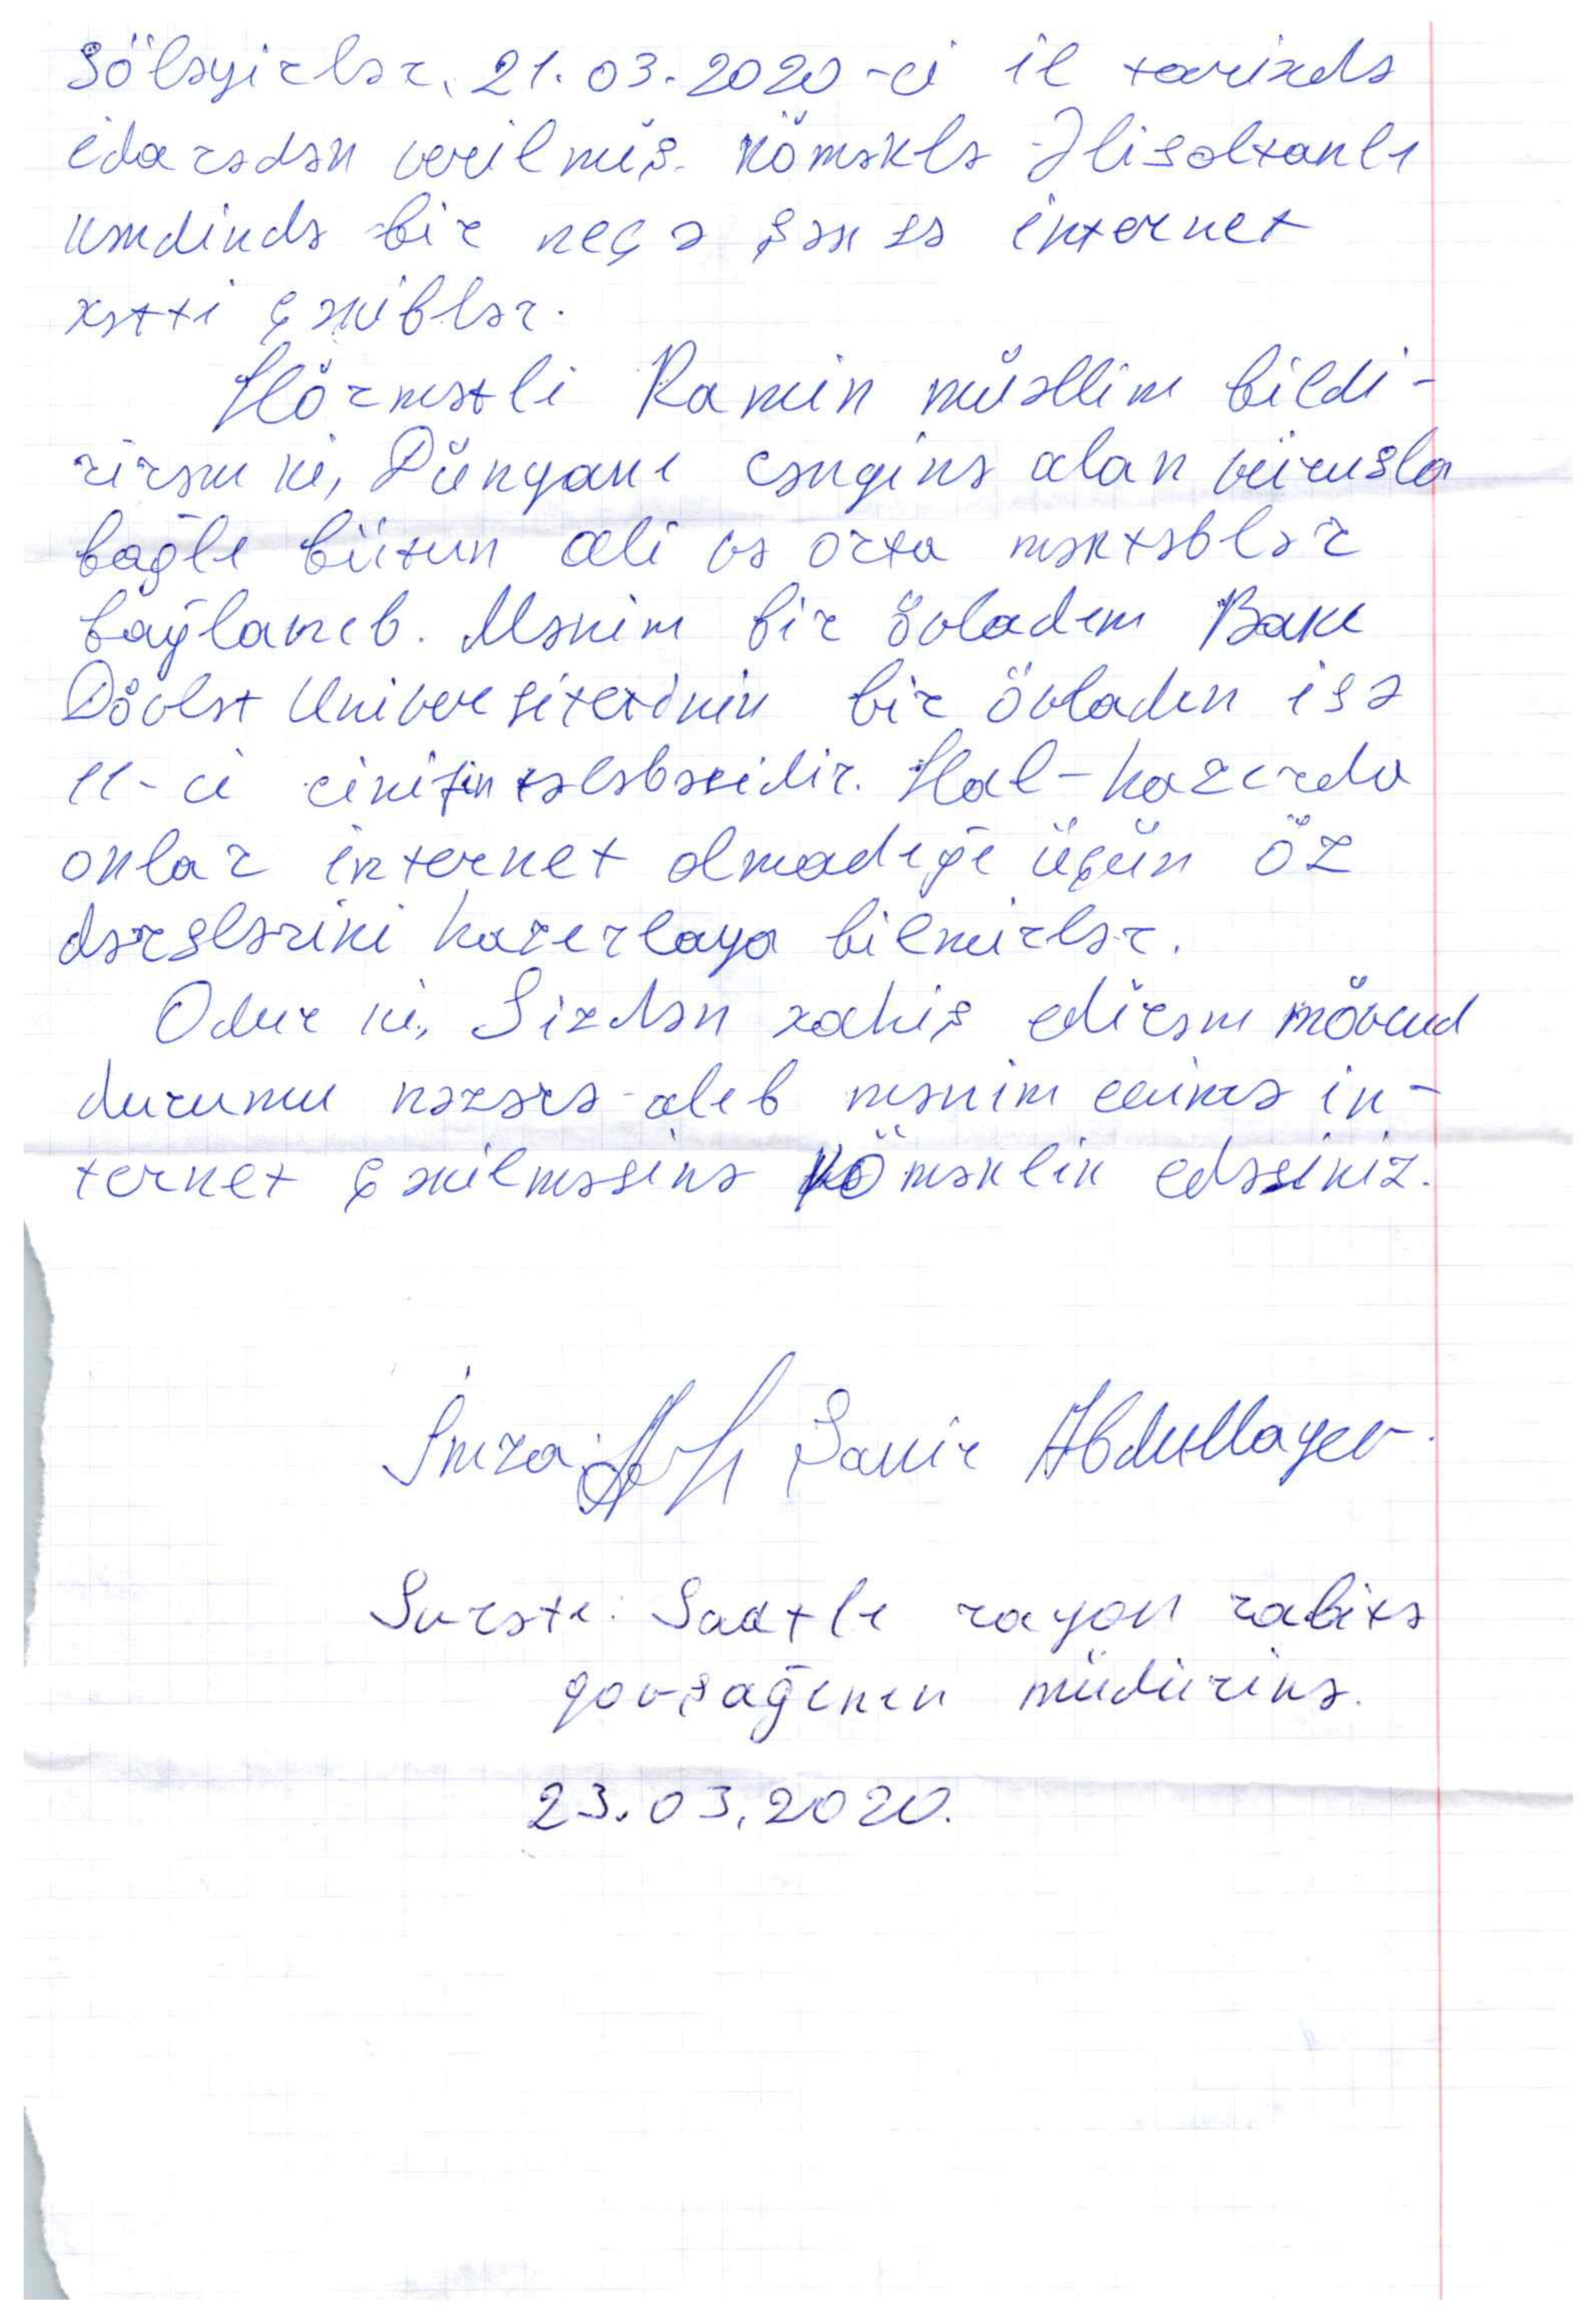 Söləyirlər, 21.03.2020-ci il tarixdə
idarədən verilmiş köməklə Əlisoltanlı
kəndində bir neçə şəxsə internet
xətti çəkiblər.
Hörmətli Ramin müəllim bildi-
rirəm ki, Dünyanı cənginə alan virusla
bağlı bütün ali və orta məktəblər
bağlanıb. Mənim bir övladım Bakı
Dövlət Universitetinin bir övladın isə
11-ci cinifin tələbəsidir. Hal-hazırda
onlar internet olmadığı üçün öz
dərslərini hazırlaya bilmirlər.
Odur ki, Sizdən xahiş edirəm mövcud
durumu nəzərə alıb mənim evimə in-
ternet çəkilməsinə köməklik edəsiniz.
İmza: Samir Abdullayev.
Surəti: Saatlı rayon rabitə
qovşağının müdürinə.
23.03.2020.